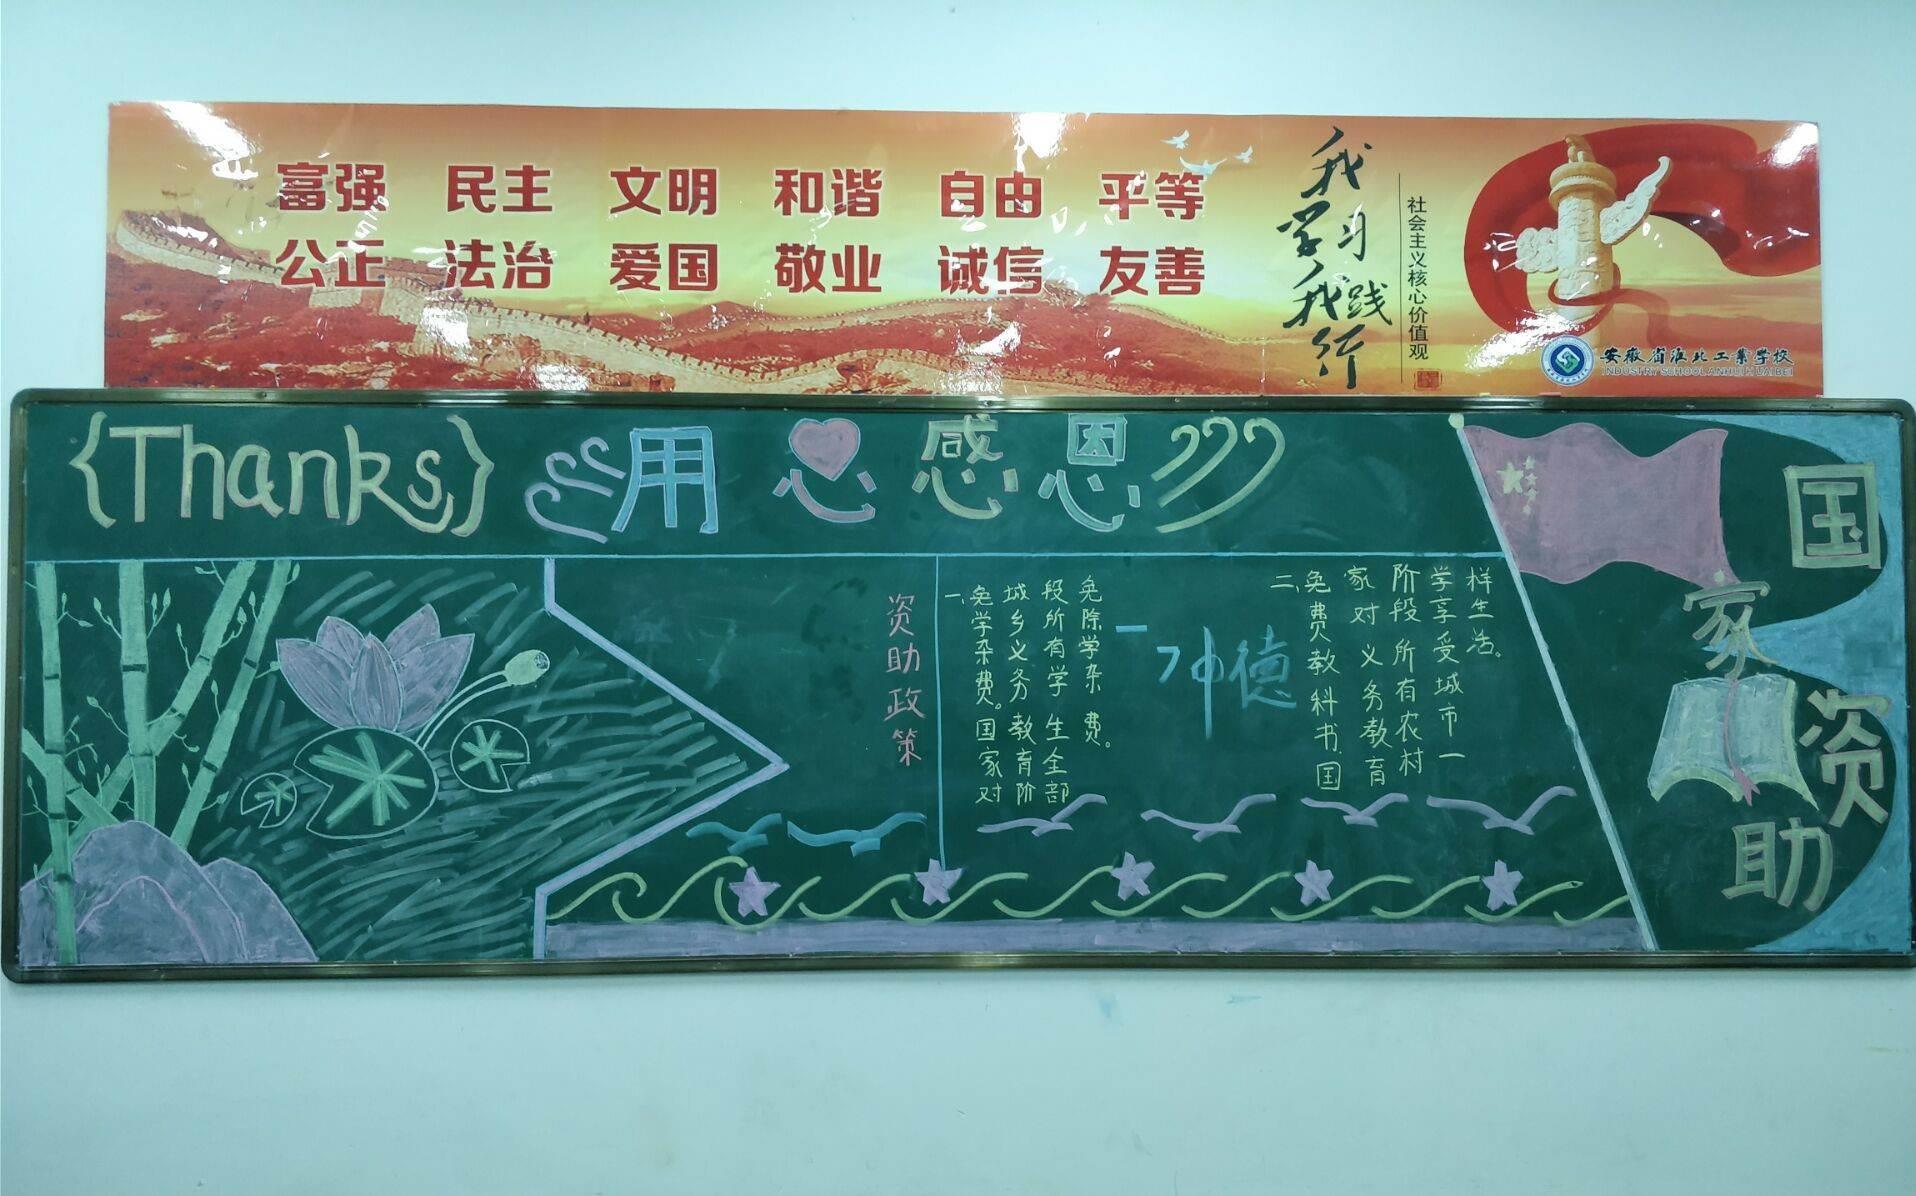 富强 民主 文明 和谐 自由 平等
公正 法治 爱国 敬业 诚信 友善
我学习
我践行
社会主义核心价值观
安徽省淮北工业学校
INDUSTRY SCHOOL ANHUI HUAIBEI
{Thanks}
用心感恩
国家资助
资助政策
一、免学杂费。国家对
城乡义务教育阶
段所有学生全部
免除学杂费。
二、免费教科书。国
家对义务教育
阶段所有农村
学享受城市一
样生活。
德